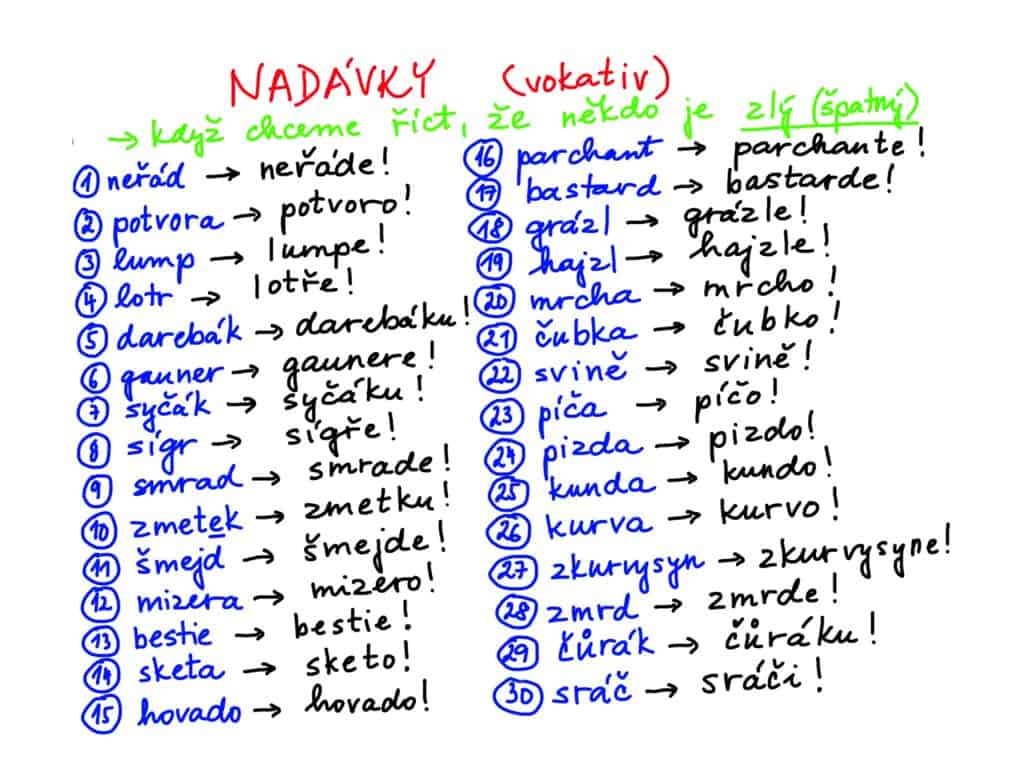 NADÁVKY (vokativ)
→ když chceme říct, že někdo je zlý (špatný)
1 neřád → neřáde!
2 potvora → potvoro!
3 lump → lumpe!
4 lotr → lotře!
5 darebák → darebáku!
6 gauner → gaunere!
7 syčák → syčáku!
8 sígr → sígře!
9 smrad → smrade!
10 zmetek → zmetku!
11 šmejd → šmejde!
12 mizera → mizero!
13 bestie → bestie!
14 sketa → sketo!
15 hovado → hovado!
16 parchant → parchante!
17 bastard → bastarde!
18 grázl → grázle!
19 hajzl → hajzle!
20 mrcha → mrcho!
21 čubka → čubko!
22 svině → svině!
23 píča → píčo!
24 pizda → pizdo!
25 kunda → kundo!
26 kurva → kurvo!
27 zkurvysyn → zkurvysyne!
28 zmrd → zmrde!
29 čůrák → čůráku!
30 sráč → sráči!